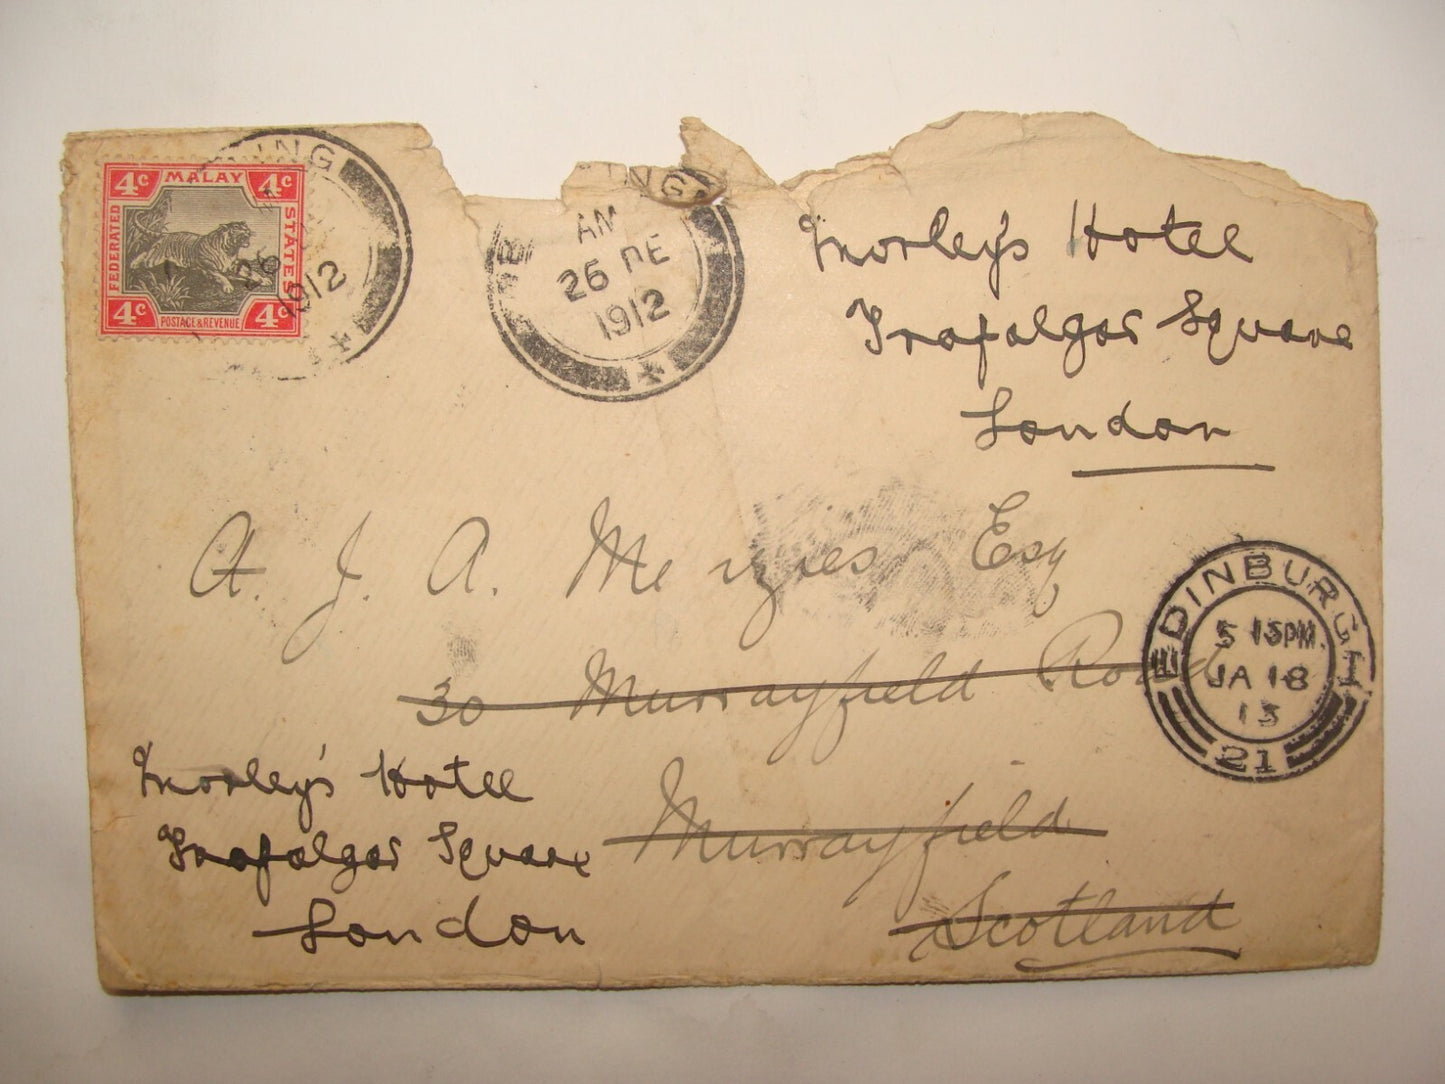 4c MALAY 4c
FEDERATED
STATES
4c POSTAGE & REVENUE 4c
ING
26
1912
ING
AM
26 DE
1912
Morley's Hotel
Trafalgar Square
London
A. J. A. Menzies Esq
30 Murrayfield Road
Murrayfield
Scotland
Morley's Hotel
Trafalgar Square
London
EDINBURGH
5 15PM
JA 18
13
21